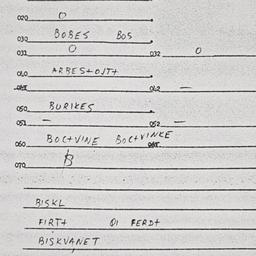 020 O
030 BOBES BOS
031 O 032 O
040 ARBES+OJT+
041 042 —
050 BURIKES
051 — 052 —
060 BOC+VINE BOC+VINKE
070 B
BISKL
FIRT+ OI FERD+
BISKVANET